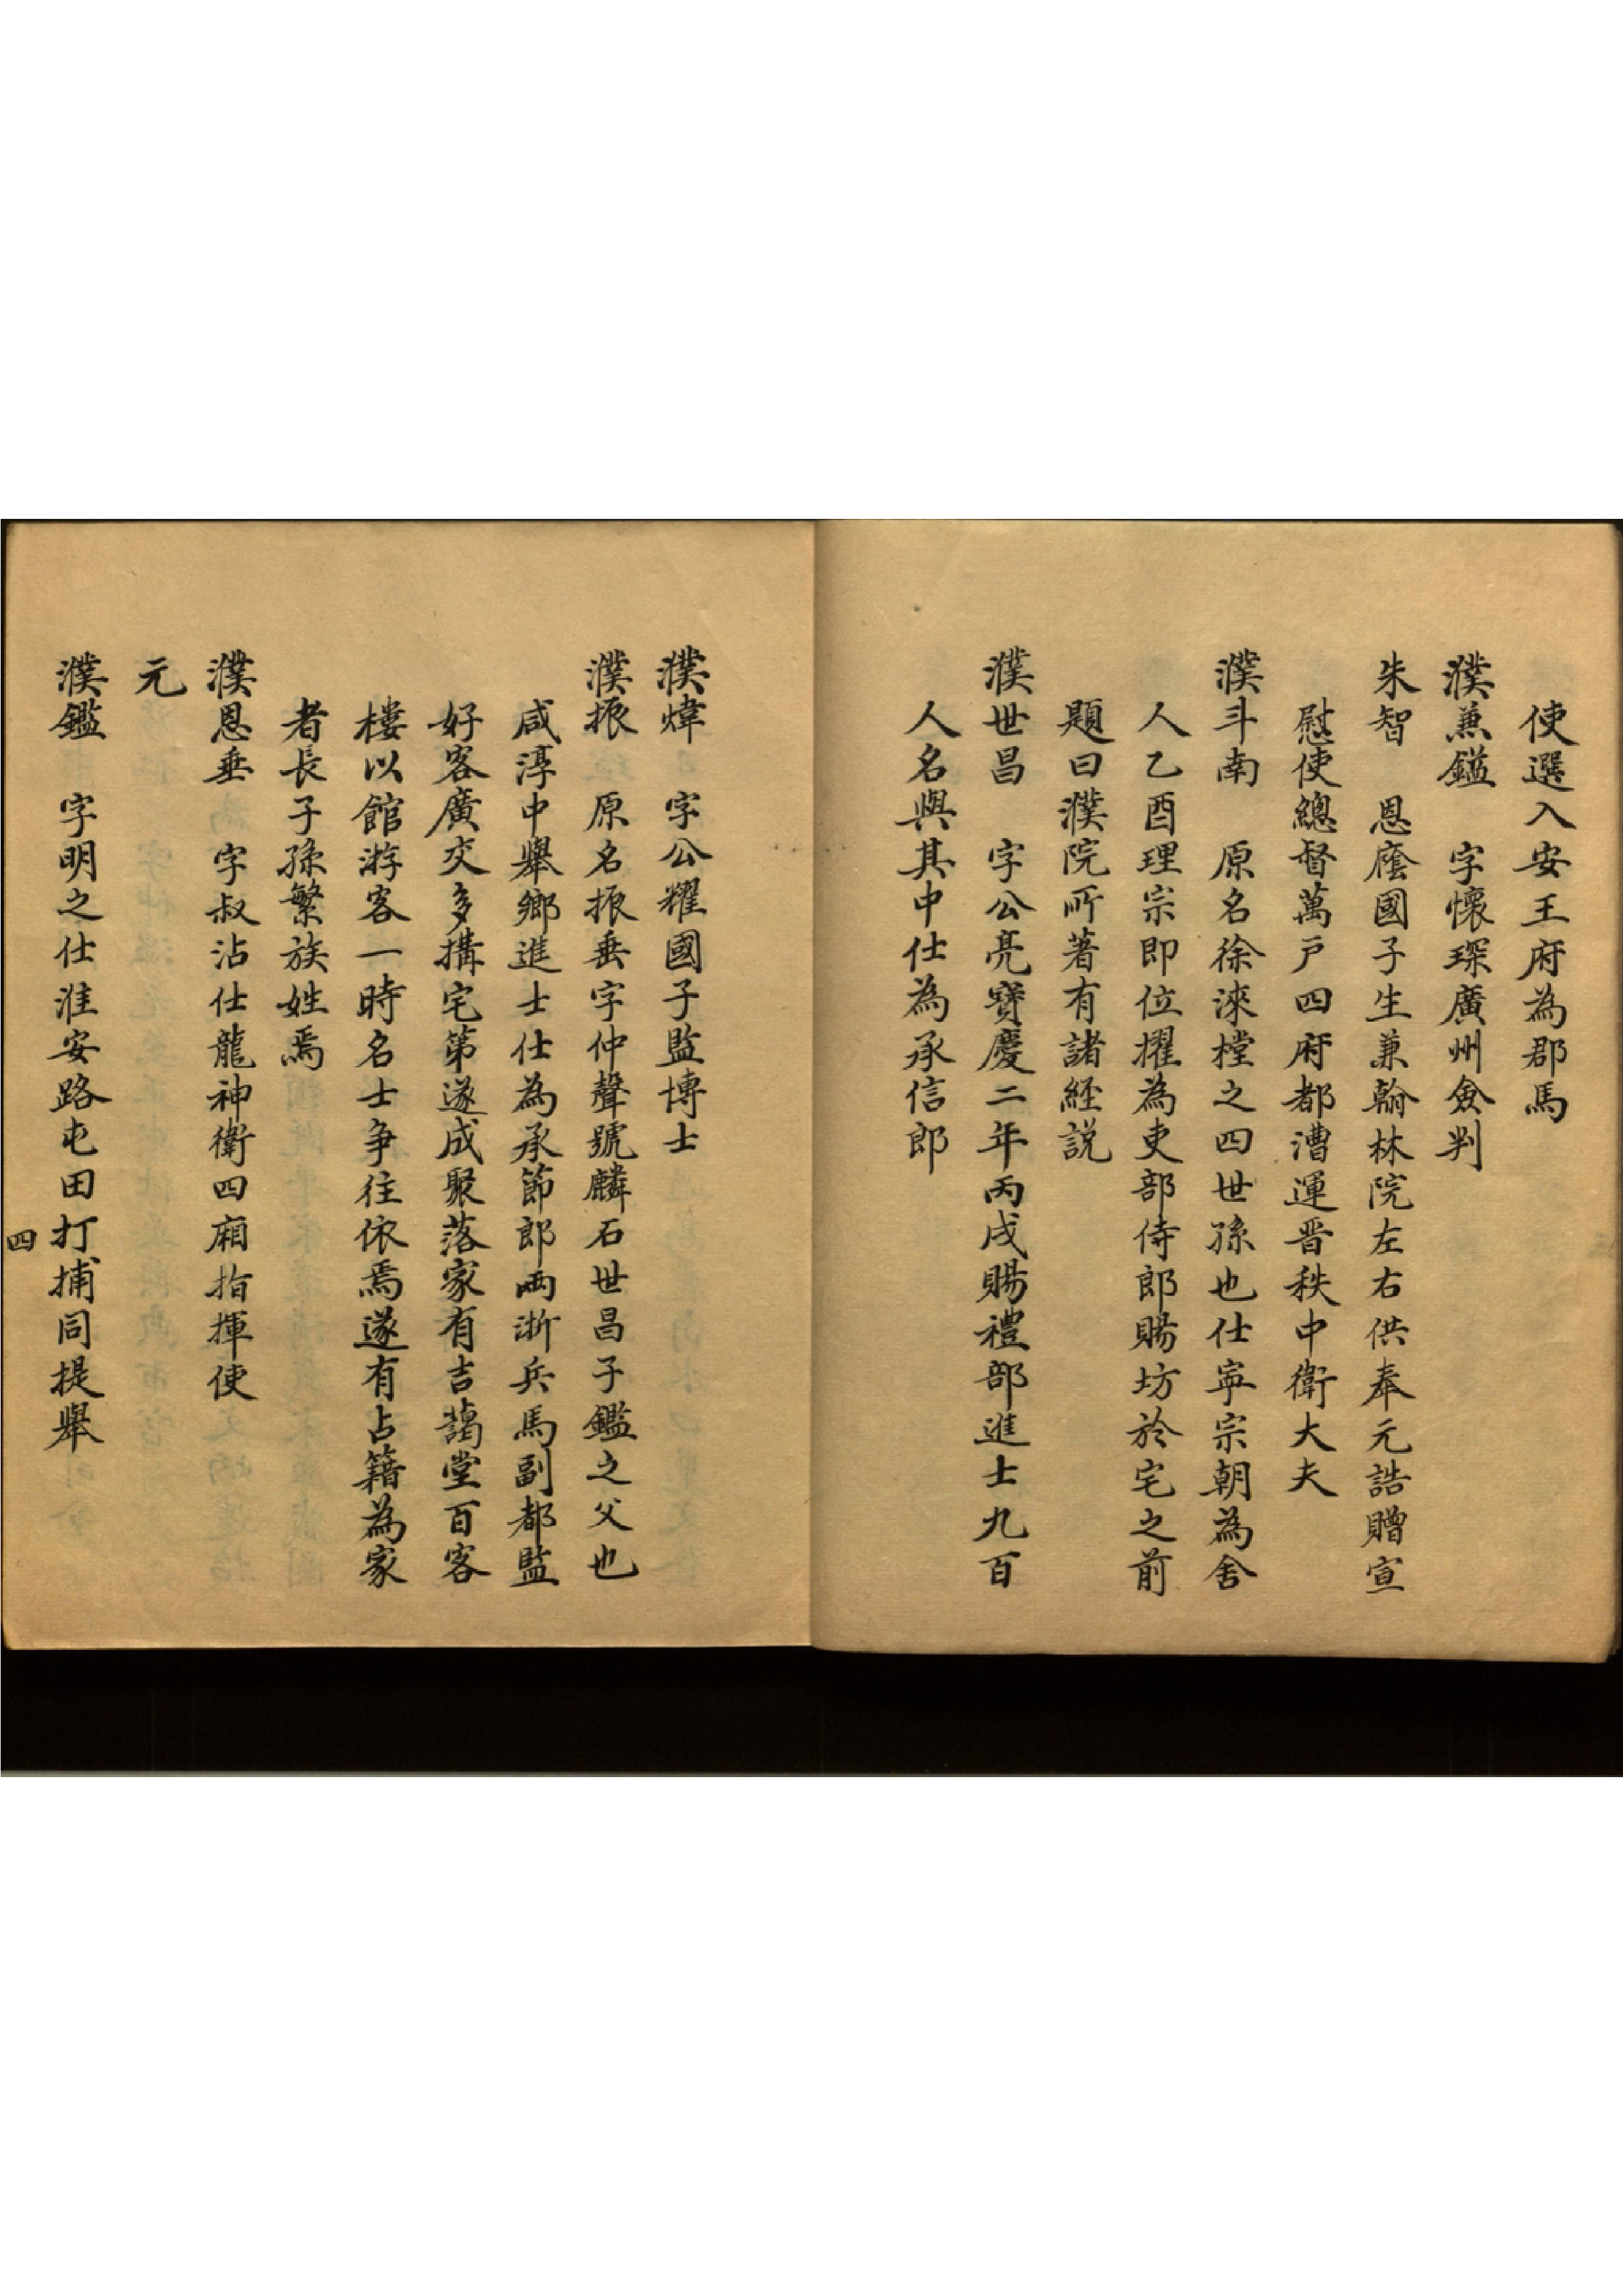 使選入安王府為郡馬
濮兼鎰 字懷琛廣州僉判
朱智 恩廕國子生兼翰林院左右供奉元誥贈宣
慰使總督萬戶四府都漕運晋秩中衛大夫
濮斗南 原名徐淶樘之四世孫也仕寧宗朝為舍
人乙酉理宗即位擢為吏部侍郎賜坊於宅之前
題曰濮院所著有諸經説
濮世昌 字公亮寶慶二年丙戌賜禮部進士九百
人名與其中仕為承信郎
濮煒 字公耀國子監博士
濮振 原名振垂字仲聲號麟石世昌子鑑之父也
咸淳中舉鄉進士仕為承節郎兩浙兵馬副都監
好客廣交多搆宅第遂成聚落家有吉藹堂百客
樓以館游客一時名士爭往依焉遂有占籍為家
者長子孫繁族姓焉
濮恩垂 字叔沾仕龍神衛四廂指揮使
元
濮鑑 字明之仕淮安路屯田打捕同提舉
四